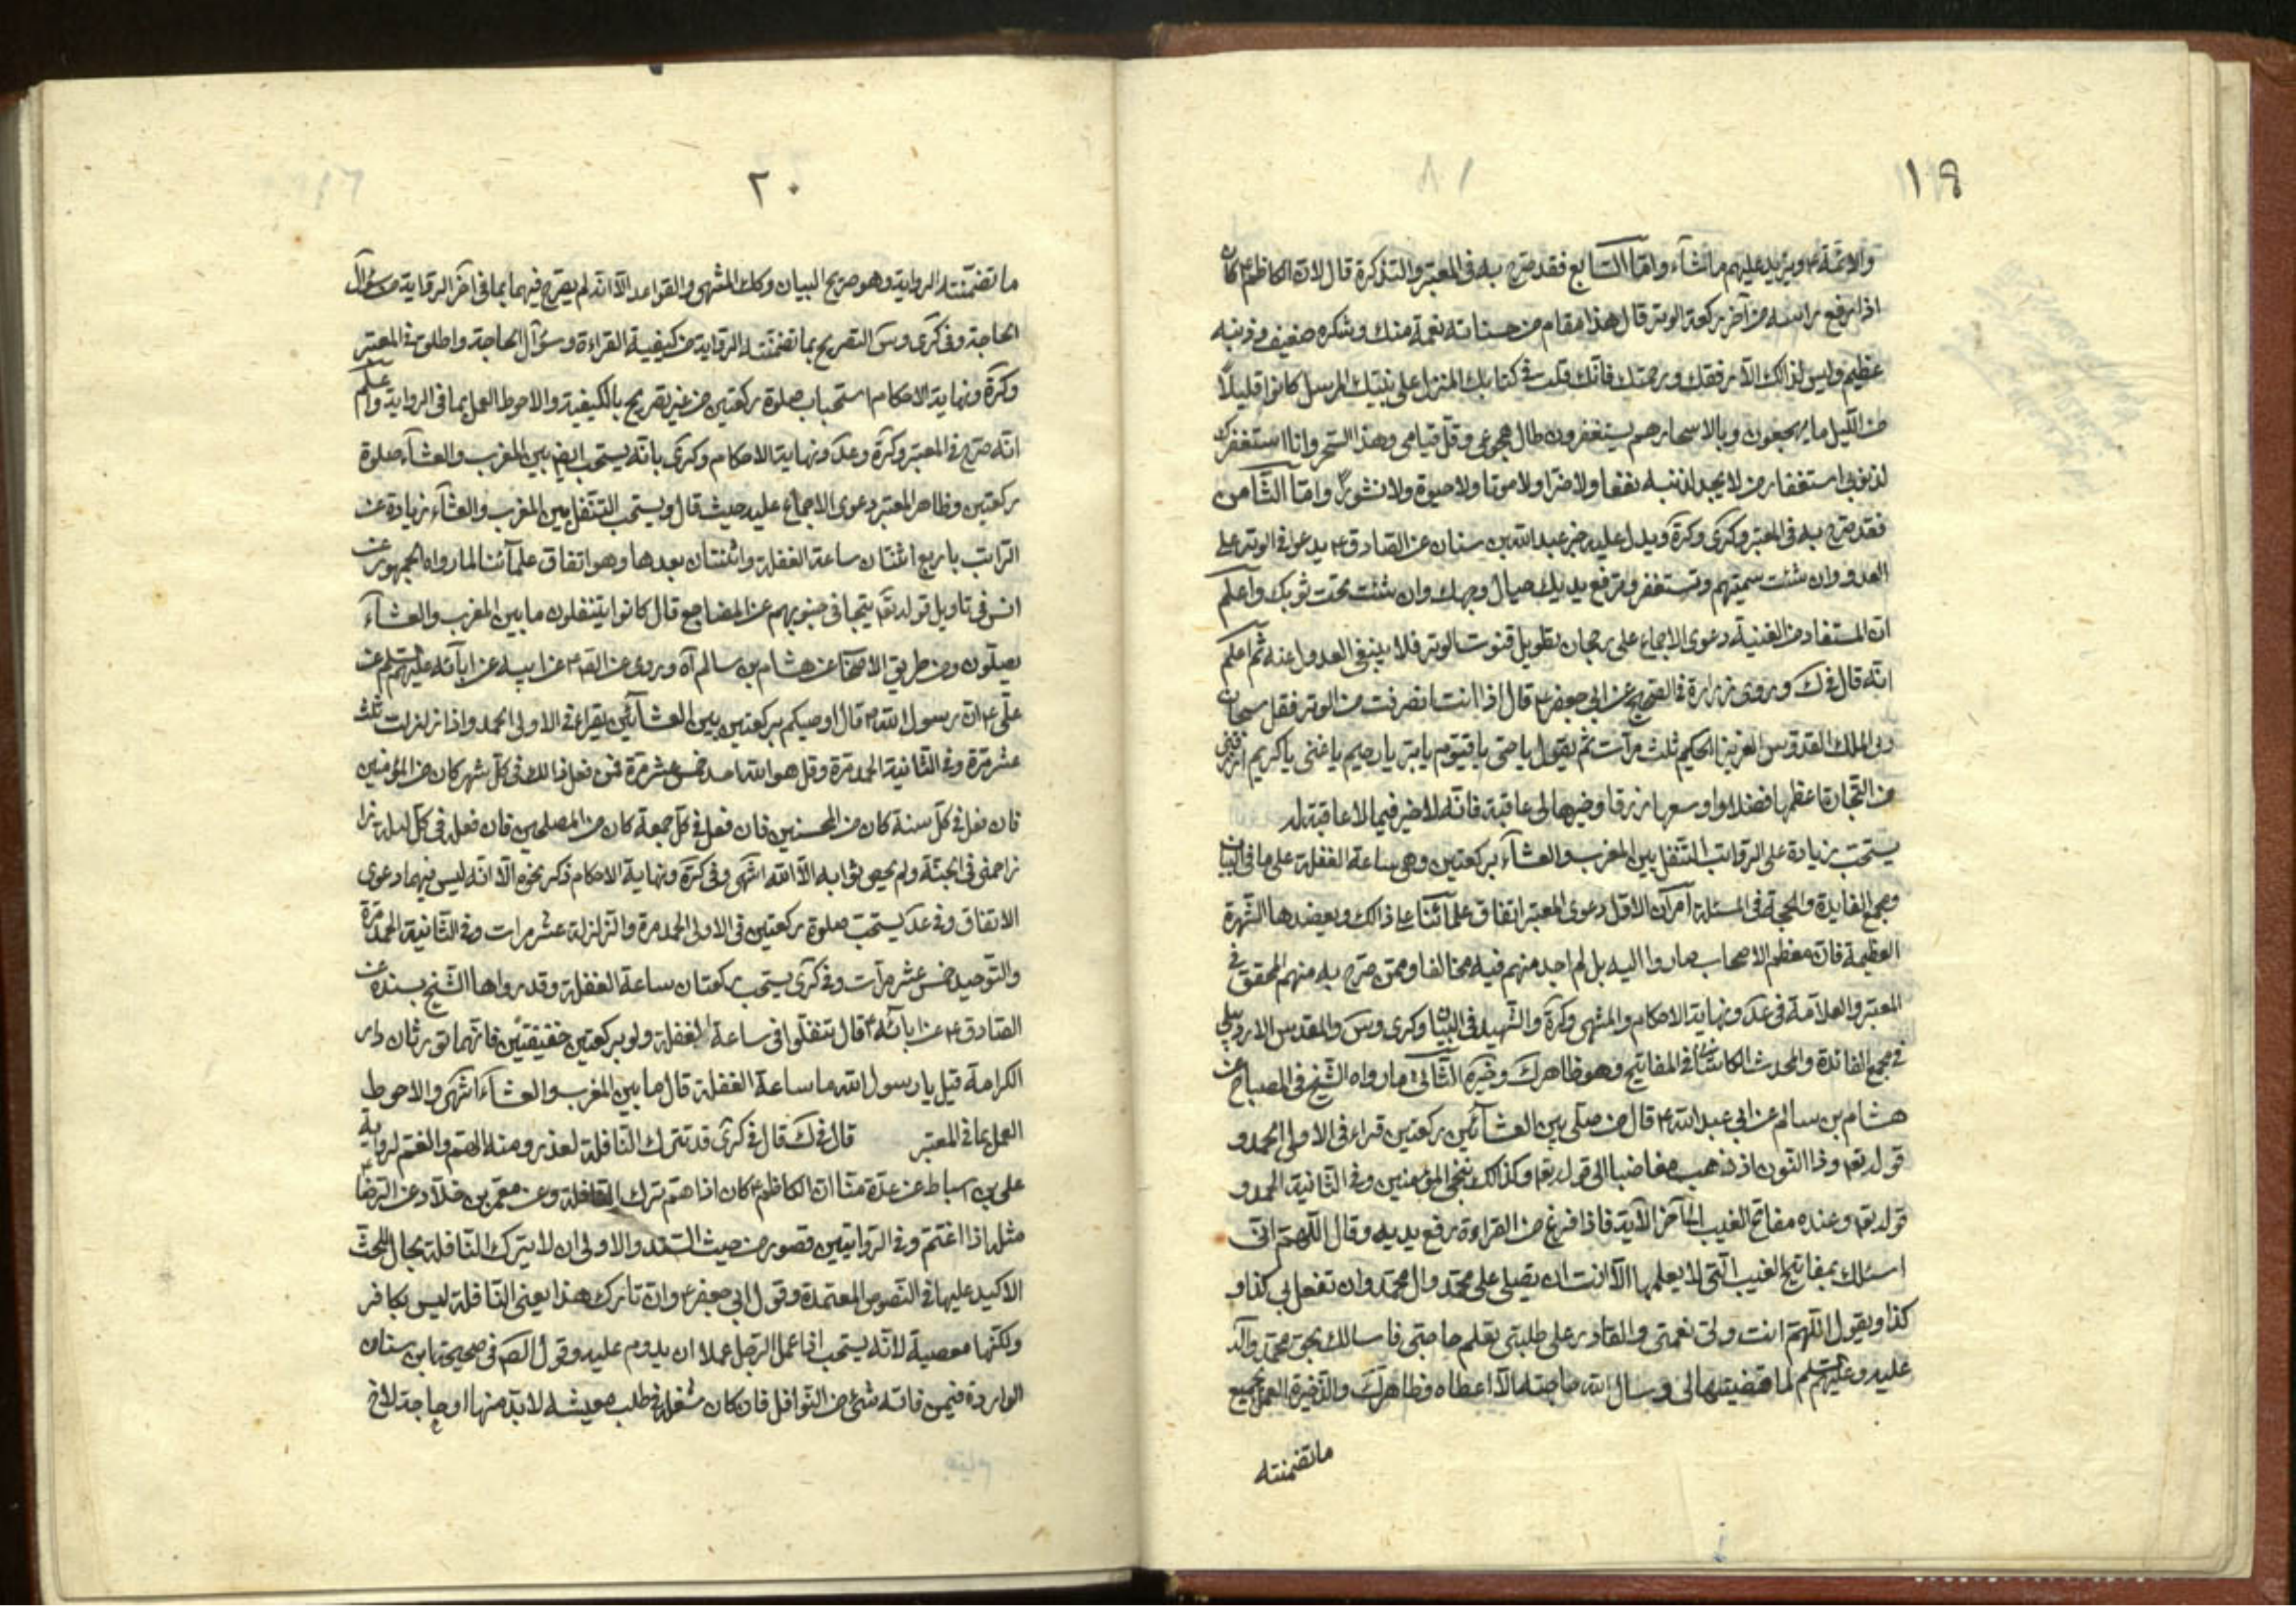 ١٩
والائمة ع ويزيد عليهم ما يشاء واما السابع فقد صرح به في المعتبر والتذكرة قال لان الكاظم ع كان
اذا رفع راسه من آخر ركعة الوتر قال هذا مقام من حسناته نعمة منك وشكره ضعيف وذنبه
عظيم وليس لذالك الا رفقك ورحمتك فانك قلت في كتابك المنزل على نبيك المرسل كانوا قليلا
من الليل ما يهجعون وبالاسحار هم يستغفرون طال هجوعي وقل قيامي وهذا السحر وانا استغفرك
لذنوبي استغفار من لا يجد لنفسه نفعا ولا ضرا ولا موتا ولا حيوة ولا نشورا واما الثامن
فقد صرح به في المعتبر وكرى وكرة ويدل عليه خبر عبد الله بن سنان عن الصادق ع يدعو في الوتر على
العدو وان شئت سميتهم وتستغفر وترفع يديك حيال وجهك وان شئت تحت ثوبك واعلم
ان المستفاد من الغنية دعوى الاجماع على رجحان تطويل قنوت الوتر فلا ينبغي العدول عنه ثم اعلم
انه قال في ك وروى زرارة في الصحيح عن ابي جعفر ع قال اذا انت انصرفت من الوتر فقل سبحان
ربي الملك القدوس العزيز الحكيم ثلث مرات ثم يقول يا حي يا قيوم يا بر يا رحيم يا غني يا كريم ارزقني
من التجارة اعظمها فضلا واوسعها رزقا وخيرها لي عاقبة فانه لا خير فيما لا عاقبة له
يستحب زيادة على الرواتب التنفل بين المغرب والعشاء بركعتين وهي ساعة الغفلة على ما في البيان
ومجمع الفايدة والحجة في المسئلة امران الاول دعوى المعتبر اتفاق علمائنا على ذالك ويعضدها الشهرة
العظيمة فان معظم الاصحاب صاروا اليه بل لم اجد منهم فيه مخالفا وممن صرح به منهم المحقق في
المعتبر والعلامة في عد ونهاية الاحكام والمنتهى وكرة والشهيد في البيان وكرى وس والمقدس الاردبيلي
في مجمع الفائدة والمحدث الكاشاني في المفاتيح وهو ظاهر ك وخيره الثاني ما رواه الشيخ في المصباح عن
هشام بن سالم عن ابي عبد الله ع قال من صلى بين العشائين ركعتين قراء في الاولى الحمد و
قوله تعم وذا النون اذ ذهب مغاضبا الى قوله تعم وكذالك ننجي المؤمنين وفي الثانية الحمد و
قوله تعم وعنده مفاتح الغيب الى آخر الآية فاذا فرغ من القراءة رفع يديه وقال اللهم اني
اسئلك بمفاتيح الغيب التي لا يعلمها الا انت ان تصلي على محمد وال محمد وان تفعل بي كذا و
كذا ويقول اللهم انت ولي نعمتي والقادر على طلبتي تعلم حاجتي فاسالك بحق محمد وآله
عليه وعليهم السلم لما قضيتها لي وسال الله حاجته الا اعطاه وظاهر ك والذخيرة العمل بجميع
ما تضمنته
٢٠
ما تضمنته الرواية وهو صريح البيان وكك المنتهى والقواعد الا انه لم يصرح فيهما بما في آخر الرواية من سؤال
الحاجة وفي كرى وس التصريح بما تضمنته الرواية من كيفية القراءة وسؤال الحاجة واطلق في المعتبر
وكرة ونهاية الاحكام استحباب صلوة ركعتين من غير تصريح بالكيفية والاحوط العمل بما في الرواية واعلم
انه صرح في المعتبر وكرة وعد ونهاية الاحكام وكرى بانه يستحب ايضا بين المغرب والعشاء صلوة
ركعتين وظاهر المعتبر دعوى الاجماع عليه حيث قال ويستحب التنفل بين المغرب والعشاء زيادة عن
الراتب باربع اثنتان ساعة الغفلة واثنتان بعدها وهو اتفاق علمائنا لما رواه الجمهور عن
انس في تاويل قوله تعم يتجافى جنوبهم عن المضاجع قال كانوا يتنفلون ما بين المغرب والعشاء
يصلون ومن طريق الاصحاب عن هشام بن سالم آه وروى عن الصم ع عن ابيه عن ابآئه عليهم السلم عن
علي ع ان رسول الله ص قال اوصيكم بركعتين بين العشائين يقراء في الاولى الحمد واذا زلزلت ثلث
عشر مرة وفي الثانية الحمد مرة وقل هو الله احد خمس عشر مرة فمن فعل ذالك في كل شهر كان من المؤمنين
فان فعل في كل سنة كان من المحسنين فان فعل في كل جمعة كان من المصلحين فان فعله في كل ليلة
زاحمني في الجنة ولم يحص ثوابه الا الله انتهى وفي كرة ونهاية الاحكام ذكر نحوه الا انه ليس فيهما دعوى
الاتفاق وفي عد يستحب صلوة ركعتين في الاولى الحمد مرة والزلزلة عشر مرات وفي الثانية الحمد مرة
والتوحيد خمس عشر مرات وفي كرى يستحب ركعتان ساعة الغفلة وقد رواها الشيخ بسنده عن
الصادق ع عن ابائه ع قال تنفلوا في ساعة الغفلة ولو بركعتين خفيفتين فانهما تورثان دار
الكرامة قيل يا رسول الله ما ساعة الغفلة قال ما بين المغرب والعشاء انتهى والاحوط
العمل بما في المعتبر قال في ك قال في كرى قد تترك النافلة لعذر ومنه الهم والغم لرواية
علي بن اسباط عن عدة منا ان الكاظم ع كان اذا اهتم ترك النافلة وعن معمر بن خلاد عن الرضا ع
مثله اذا اغتم وفي الروايتين قصور من حيث السند والاولى ان لا يترك النافلة بحال للحث
الاكيد عليها في النصوص المعتمدة وقول ابي جعفر ع وان تارك هذا يعني النافلة ليس بكافر
ولكنها معصية لانه يستحب اذا عمل الرجل عملا ان يدوم عليه وقول الصم في صحيحة ابن سنان
الواردة فيمن فاته شئ من النوافل فان كان شغله في طلب معيشة لا بد منها او حاجة لاخ